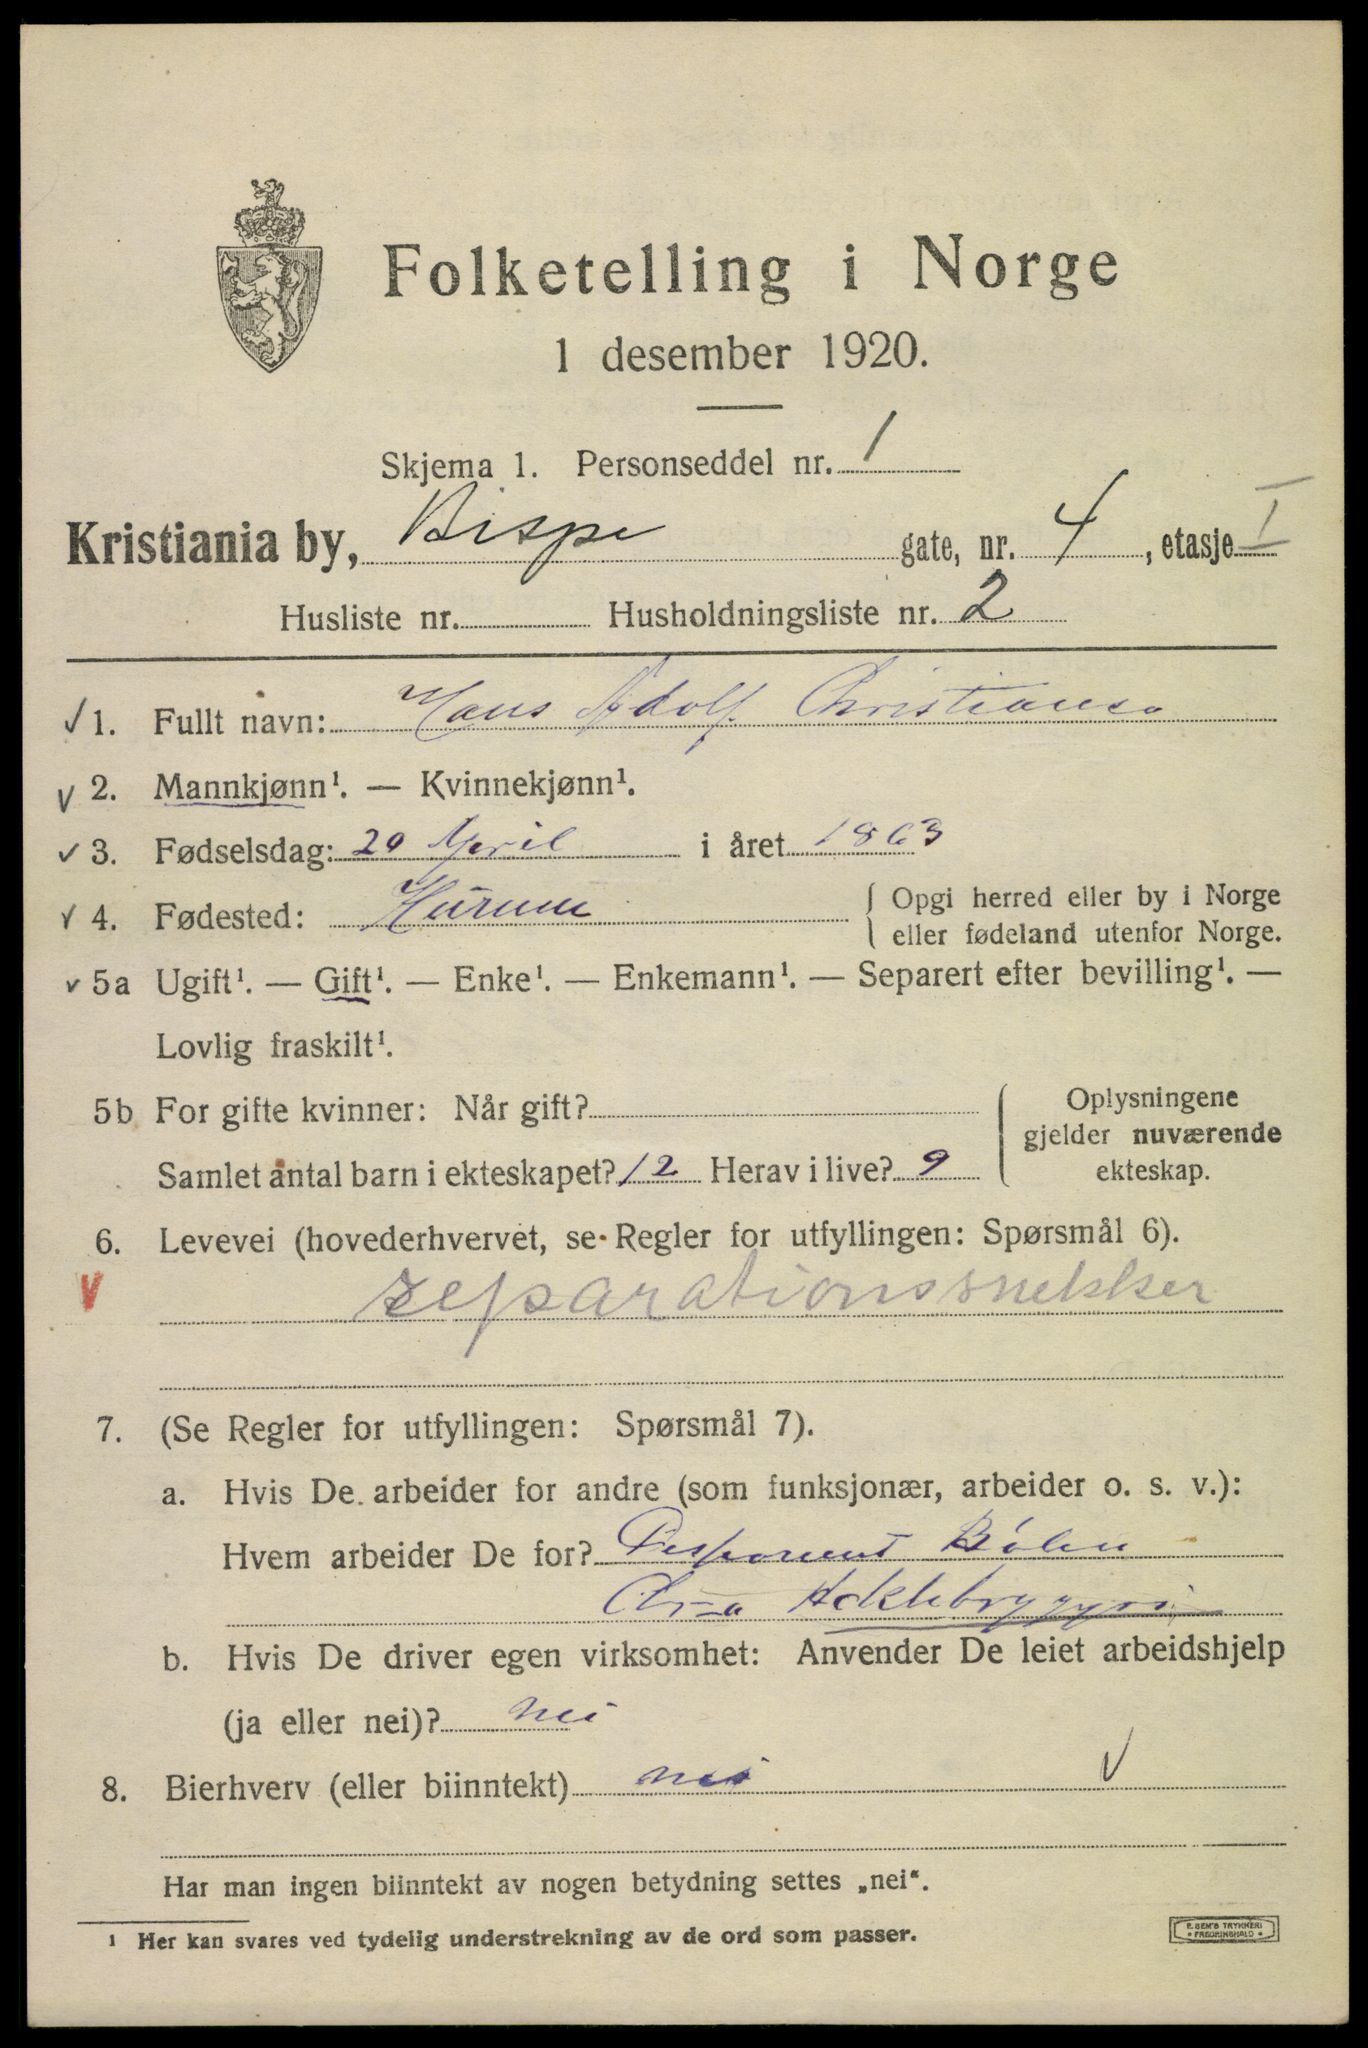 Folketelling i Norge
1 desember 1920.
Skjema 1. Personseddel nr. 1
Kristiania by, Bispe gate, nr. 4, etasje I
Husliste nr. Husholdningsliste nr. 2
1. Fullt navn: Hans Adolf Christiansen
2. Mannkjønn¹. — Kvinnekjønn¹.
3. Fødselsdag: 20 April i året 1863
4. Fødested: Hurum { Opgi herred eller by i Norge
eller fødeland utenfor Norge.
5a Ugift¹. — Gift¹. — Enke¹. — Enkemann¹. — Separert efter bevilling¹. —
Lovlig fraskilt¹.
5b For gifte kvinner: Når gift?
Samlet antal barn i ekteskapet? 12 Herav i live? 9
Oplysningene
gjelder nuværende
ekteskap.
6. Levevei (hovederhvervet, se Regler for utfyllingen: Spørsmål 6).
reparationssnekker
7. (Se Regler for utfyllingen: Spørsmål 7).
a. Hvis De arbeider for andre (som funksjonær, arbeider o. s. v.):
Hvem arbeider De for? Bølen
b. Hvis De driver egen virksomhet: Anvender De leiet arbeidshjelp
(ja eller nei)? nei
8. Bierhverv (eller biinntekt) nei
Har man ingen biinntekt av nogen betydning settes „nei“.
¹ Her kan svares ved tydelig understrekning av de ord som passer.
E. SEM'S TRYKKERI
FREDRIKSHALD